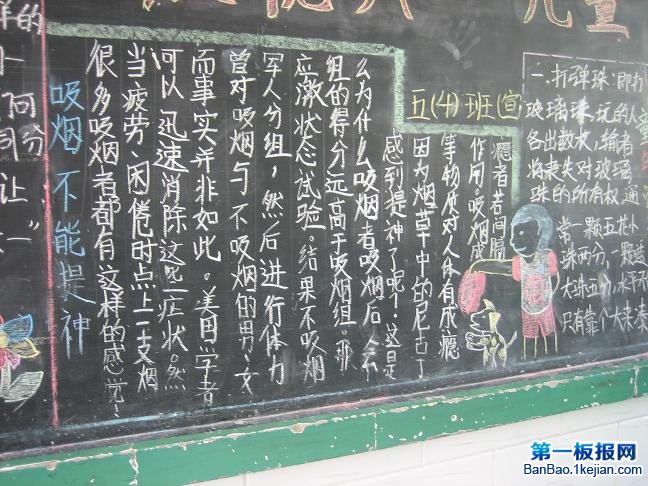 吸烟不能提神
很多吸烟者都有这样的感觉:
当疲劳、困倦时点上一支烟
可以迅速消除这些症状。然
而事实并非如此。美国学者
曾对吸烟与不吸烟的男、女
军人分组,然后进行体力
应激状态试验。结果不吸烟
组的得分远高于吸烟组。那
么为什么吸烟者吸烟后会
感到提神了呢?这是
因为烟草中的尼古丁
等物质对人体有成瘾
作用。吸烟成
瘾者若间隔
五(4)班(宣
一、打弹珠:即打
玻璃珠,玩的人
各出数水,输者
将丧失对玻璃
珠的所有权
常一颗五花小
珠两分,一颗
大珠五分,水平不
只有靠个大来
儿童
样的
阿
同分
让
第一板报网
BanBao.1kejian.com